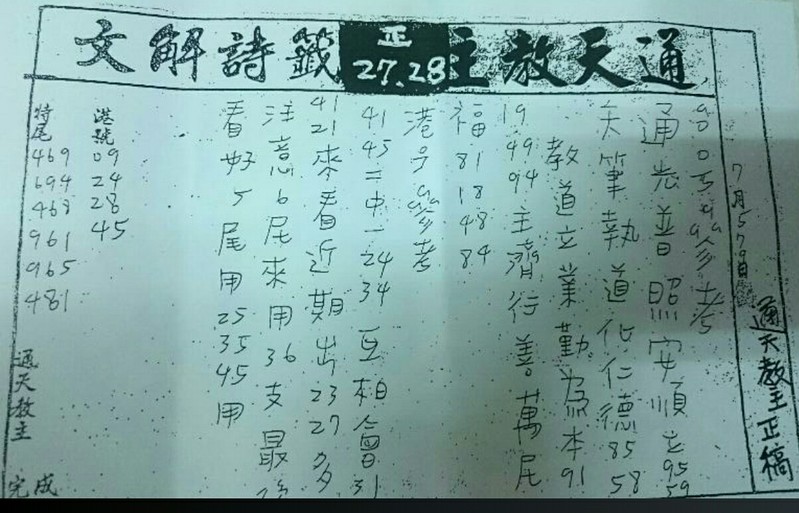 通天教主
正
27.28
籤詩解文
7月579日
通天教主正稿
參考
通光普照安順走 95 59
天筆執道化仁德 85 58
教道立業勤為本 91
19 49 94 主濟行善萬民
福 81 18 48 84
港号參考
41 45 二中一 24 34 互相會 31
41 21 來看近期出 23 27 多
注意6尾來用36支最
看好5尾用 25 35 45 用
港號
09
24
28
45
特尾
469
694
468
961
965
481
通天教主
完成